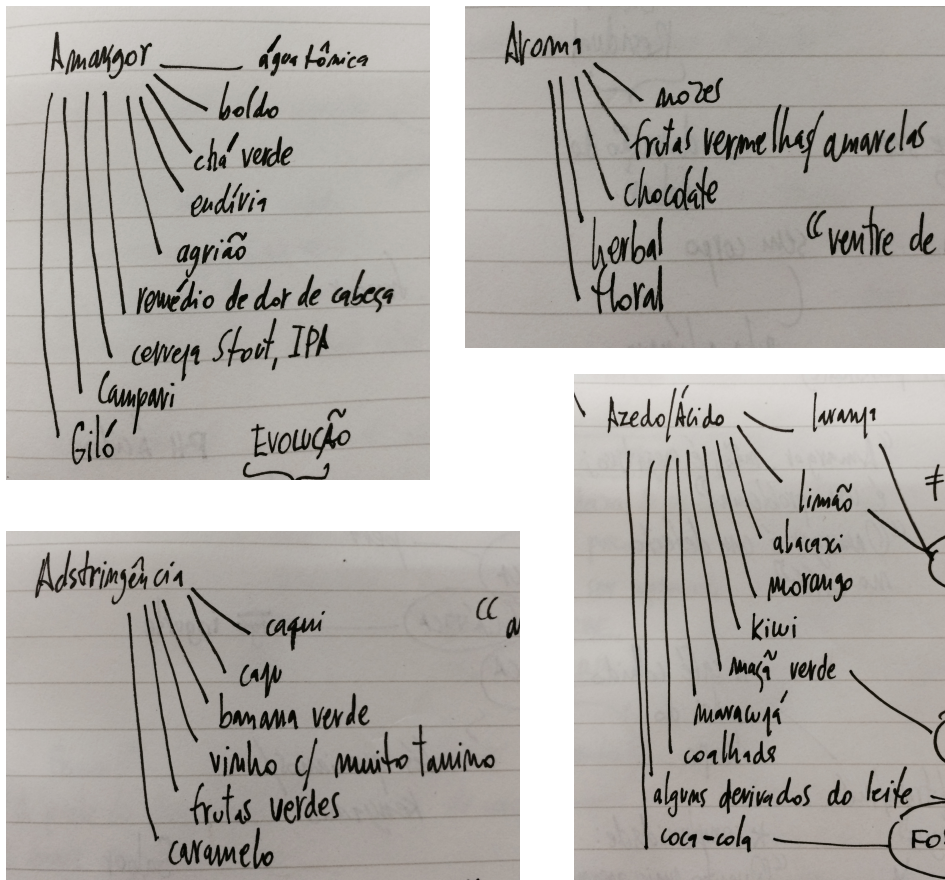 Amargor
água tônica
boldo
chá verde
endívia
agrião
remédio de dor de cabeça
cerveja Stout, IPA
Campari
Giló
EVOLUÇÃO
Aroma
nozes
frutas vermelhas/amarelas
chocolate
herbal
"ventre de
floral
Adstringência
caqui
caju
banana verde
vinho c/ muito tanino
frutas verdes
caramelo
Azedo/Ácido
laranja
≠
limão
abacaxi
morango
kiwi
maçã verde
maracujá
coalhada
alguns derivados do leite
coca-cola